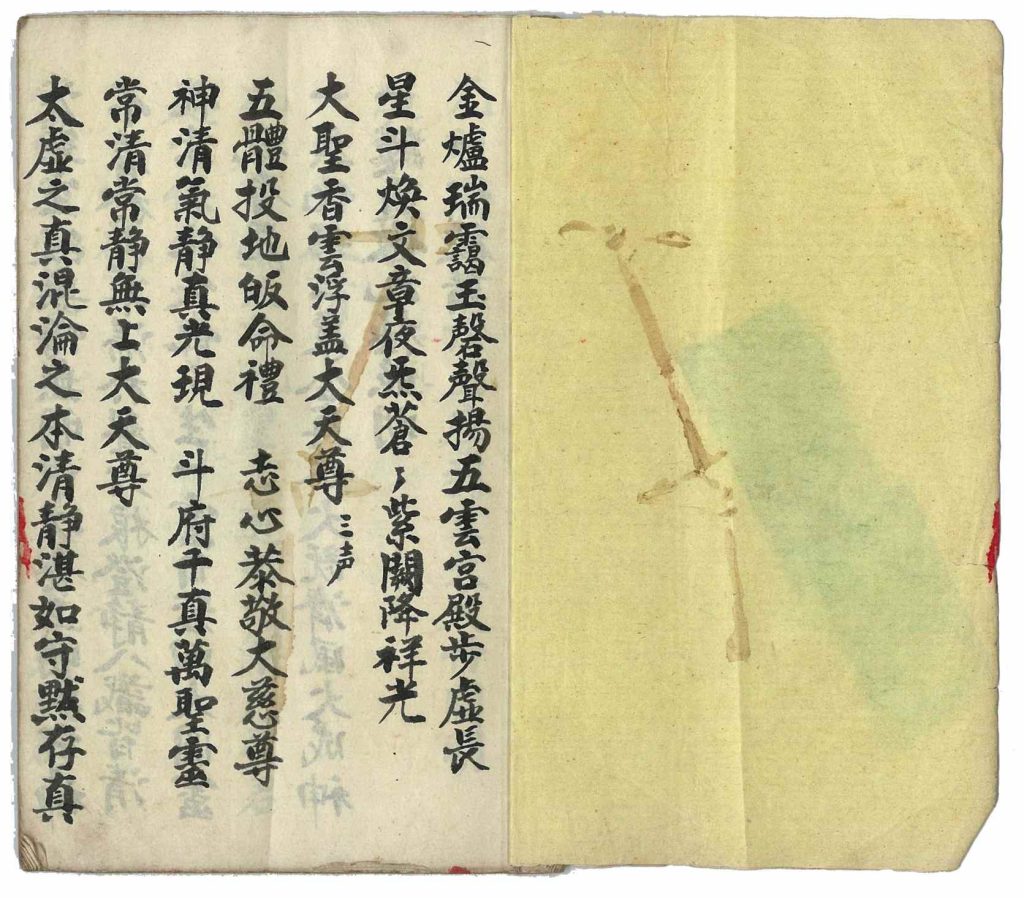 金爐瑞靄玉磬聲揚五雲宮殿步虛長
星斗煥文章夜炁蒼〻紫闕降祥光
大聖香雲浮盖大天尊 三声
五體投地皈命禮 志心恭敬大慈尊
神清氣静真光現 斗府千真萬聖靈
常清常静無上大天尊
太虛之真混淪之本清静湛如守黙存真